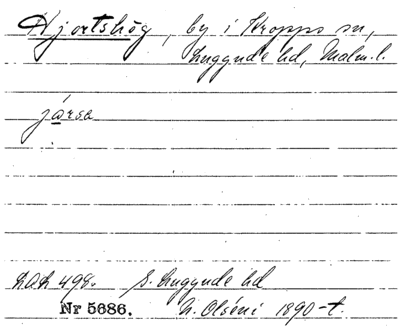 Hjortshög, by i Kropps sn,
Luggude hd, Malm.l.
jårsa
LAL 498. S. Luggude hd
Nr 5686. N. Olséni 1890-t.